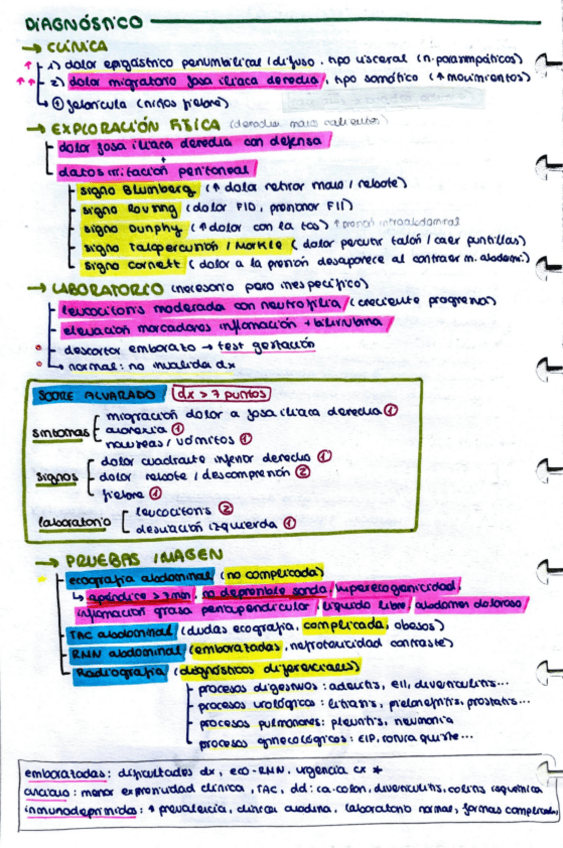 DIAGNÓSTICO
→ CLÍNICA
↑ 1) dolor epigástrico periumbilical / difuso, tipo visceral (n. parasimpáticos)
↑↑ 2) dolor migratorio fosa iliaca derecha, tipo somático (↑ movimientos)
↳ febrícula (niños fiebre)
→ EXPLORACIÓN FÍSICA
dolor fosa iliaca derecha con defensa
+
datos irritación peritoneal
signo Blumberg (↑ dolor retirar mano / rebote)
signo Rovsing (dolor FID, presionar FII)
signo Dunphy (↑ dolor con la tos) ↑ presión intraabdominal
signo Talopercusión / Markle (dolor percutir talón / caer puntillas)
signo Cornett (dolor a la presión desaparece al contraer m. abdomi.)
→ LABORATORIO (necesario pero inespecífico)
leucocitosis moderada con neutrofilia (creciente progresiva)
elevación marcadores inflamación + bilirrubina
descartar embarazo → test gestación
normal: no invalida dx
SCORE ALVARADO dx > 7 puntos
síntomas
migración dolor a fosa iliaca derecha ①
anorexia ①
nauseas / vómitos ①
signos
dolor cuadrante inferior derecho ①
dolor rebote / descompresión ②
fiebre ①
laboratorio
leucocitosis ②
desviación izquierda ①
→ PRUEBAS IMAGEN
ecografía abdominal (no complicada)
↳ apéndice > 7mm, no depresible sonda, hiperecogenicidad,
inflamación grasa periapendicular, líquido libre, abdomen doloroso
TAC abdominal (dudas ecografía, complicada, obesos)
RNM abdominal (embarazadas, nefrotoxicidad contraste)
Radiografía (diagnósticos diferenciales)
procesos digestivos: adenitis, EII, diverticulitis...
procesos urológicos: litiasis, pielonefritis, prostatis...
procesos pulmonares: pleuritis, neumonía
procesos ginecológicos: EIP, rotura quiste...
embarazadas: dificultades dx, eco-RNM, urgencia cx *
anciano: menor expresividad clínica, TAC, dd: ca-colon, diverticulitis, colitis isquémica
inmunodeprimidos: ↑ prevalencia, clínica anodina, laboratorio normal, formas complicadas